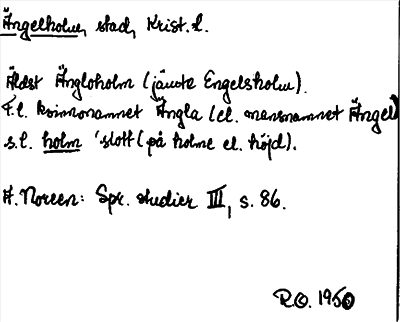 Ängelholm, stad, Krist. l.
Äldst Ängloholm (jämte Engelsholm).
T.l. kvinnonamnet Ängla (el. mansnamnet Ängel)
s.l. holm 'slott (på holme el. höjd).
A. Noreen: Spr. studier III, s. 86.
R.O. 1950